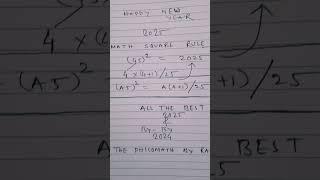 HAPPY NEW
YEAR
2025
MATH SQUARE RULE
(45)² = 2025
4×(4+1)/25
(A5)² = A(A+1)/25
ALL THE BEST
2025
&
By-By
2024
THE PHILOMATH BY RA